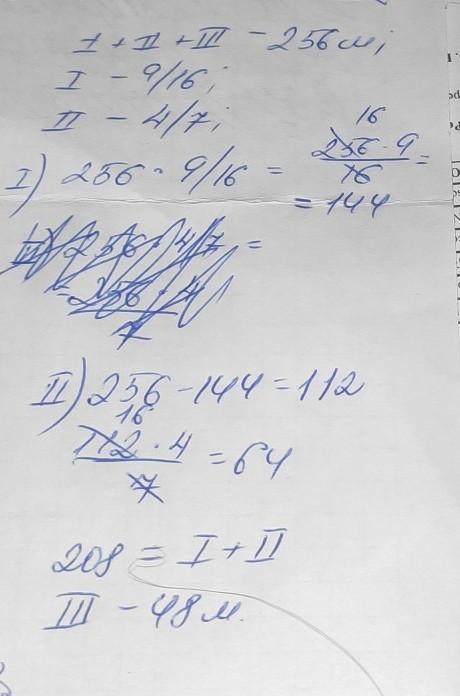 I + II + III - 256 м;
I - 9/16;
II - 4/7;
I) 256 · 9/16 = 256 · 9 / 16 =
16
= 144
II) 256 - 144 = 112
16
112 · 4 / 7 = 64
208 = I + II
III - 48 м.